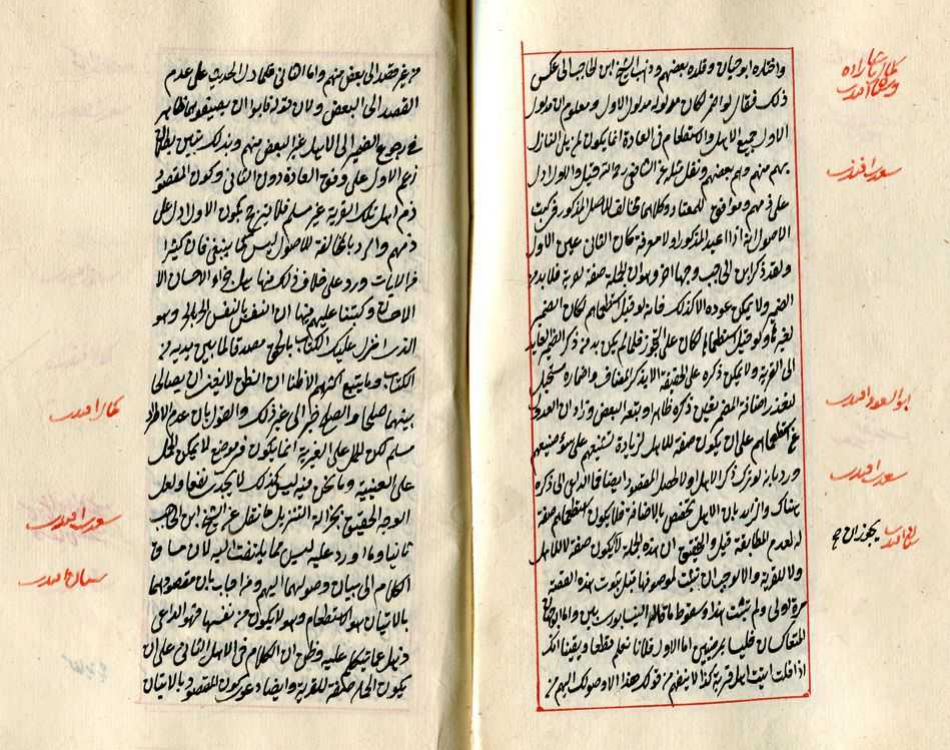 واختاره ابو حيان وقلده بعضهم وذهب الشيخ ابن الحاجب الى عكس
ذلك فقال لو اضمر لكان مدلوله مدلول الاول ومعلوم ان مدلول
الاول جميع الاهل والاستطعام في العادة انما يكون لمن يلى النازل
بهم منهم وهم بعضهم ونقل مثله عن الشافعى
على ذمهم وموافق للمعتاد وكلاهما مخالف للاصل المذكور في كتب
الاصول انه اذا اعيد المذكور اولا معرفة كان الثانى عين الاول
ولقد ذكر ابن الحاجب وجها اخر وهو ان الجملة صفة لقرية فلابد من
الضمير ولا يمكن عوده الا كذلك فانه لو قيل استطعماهم لكان الضمير
لغيرها ولو قيل استطعماها لكان على التجوز فلما لم يكن بد من ذكر الضمير العايد
الى القرية ولا يمكن ذكره على الحقيقة الا بذكر المضاف واضماره مستحيل
لتعذر اضافة المضمر تعين ذكره ظاهرا وتبعه البعض وزاد ان العدول
عن استطعماهم على ان يكون صفة للاهل لزيادة تشنيعهم على سوء صنيعهم
ورد بانه لو ترك ذكر الاهل اولا لحصل المقصود ايضا فما الداعى الى ذكره
هناك
له لعدم المطابقة قيل والتحقيق ان هذه الجملة لا يكون صفة لا للاهل
ولا للقرية والا لوجب ان تثبت لموصوفها قبل ثبوت هذه الصفة
مرة اولى ولم تثبت هذا وسقوط ما قاله النيسابورى بين واما
المتعاكسان فليسا بمرضيين اما الاول فلانا نعلم قطعا ويقينا انك
اذا قلت اتيت اهل قرية كذا لا يفهم من قولك هذا الا وصولك اليهم من
سعدى افندى
ابو السعود افندى
سعدى افندى
من غير قصد الى بعض منهم واما الثانى فلما دل الحديث على عدم
القصد الى البعض ولان قوله فابوا ان يضيفوهما ظاهر
فى رجوع الضمير الى الاهل غير البعض منهم وبذلك تبين بطلان
زعم الاول على وفق العادة دون الثانى وكون المقصود
ذم اهل تلك القرية غير مسلم
ذمهم والرد بالمخالفة للاصول ليس كما ينبغى فان كثيرا
من الايات ورد على خلاف ذلك منها هل جزاء الاحسان الا
الاحسان وكتبنا عليهم فيها ان النفس بالنفس
الذى انزل عليك الكتاب بالحق مصدقا لما بين يديه من
الكتاب وما يتبع اكثرهم الا ظنا ان الظن لا يغنى ان يصالحا
بينهما صلحا والصلح خير الى غير ذلك والقول بان عدم الاطراد
مسلم لكن الحمل على الغيرية انما يكون فى موضع لا يمكن الحمل
على العينية وما نحن فيه ليس كذلك لا يجدى نفعا ولعل
الوجه الحقيق بجزالة التنزيل ما نقل عن الشيخ ابن الحاجب
ثانيا وما اورد عليه ليس مما يلتفت اليه لان مساق
الكلام الى بيان وصولهما اليهم ومن اجاب بان مقصودهما
بالاتيان هو الاستطعام وهو لا يكون من نفسها فهو الداعى
على ان
يكون الجملة صفة للقرية وايضا دعوى كون المقصود بالاتيان
كمال افندى
سعدى افندى
سنان افندى